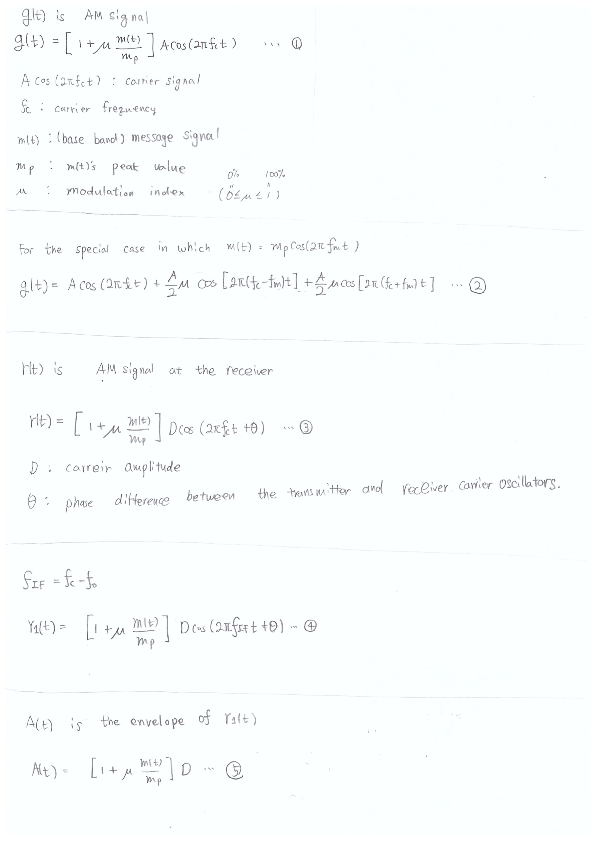 g(t) is AM signal
g(t) = [ 1 + μ m(t)/mp ] A cos(2πfct) ... ①
A cos(2πfct) : carrier signal
fc : carrier frequency
m(t) : (base band) message signal
mp : m(t)'s peak value
0% 100%
μ : modulation index (0 ≤ μ ≤ 1)
For the special case in which m(t) = mp cos(2πfmt)
g(t) = A cos(2πfct) + A/2 μ cos[2π(fc-fm)t] + A/2 μ cos[2π(fc+fm)t] ... ②
r(t) is AM signal at the receiver
r(t) = [ 1 + μ m(t)/mp ] D cos(2πfct + θ) ... ③
D : carreir amplitude
θ : phase difference between the transmitter and receiver carrier oscillators.
fIF = fc - fo
r1(t) = [ 1 + μ m(t)/mp ] D cos(2πfIFt + θ) ... ④
A(t) is the envelope of r1(t)
A(t) = [ 1 + μ m(t)/mp ] D ... ⑤